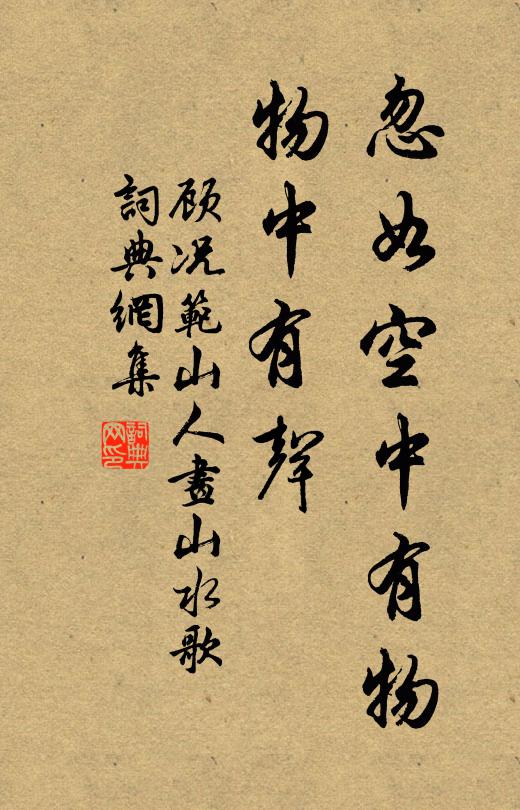 忽如空中有物
物中有聲
顾况範山人畫山水歌
詞典網集
詞典
网印